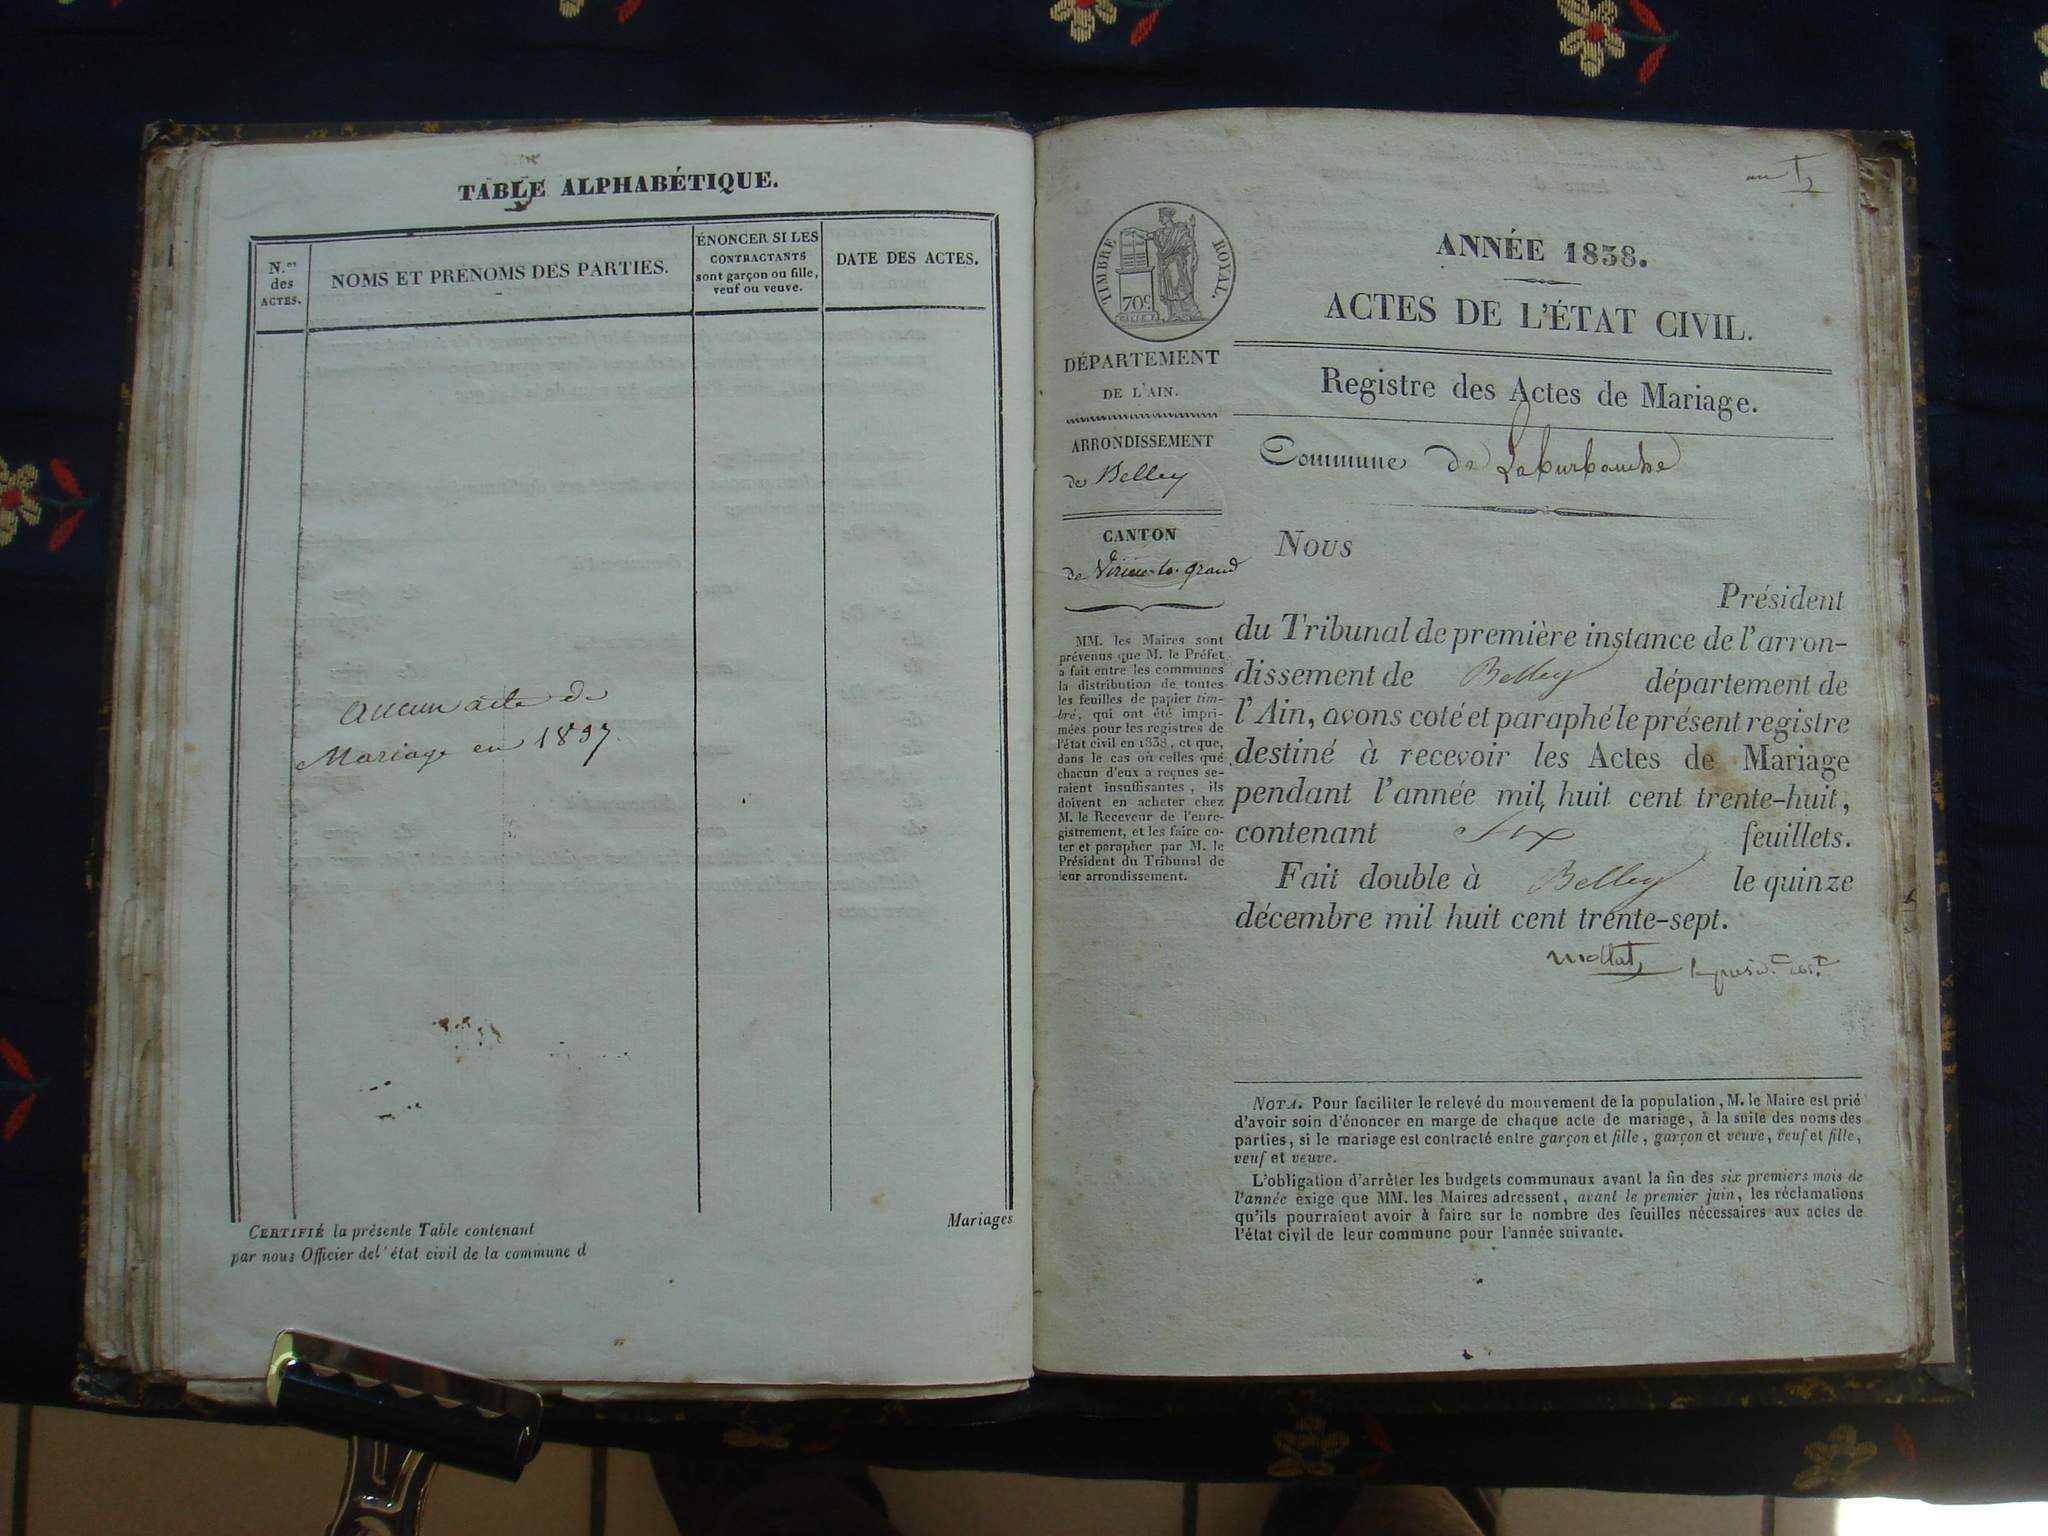 TABLE ALPHABÉTIQUE.
N.os des ACTES.
NOMS ET PRÉNOMS DES PARTIES.
ÉNONCER SI LES
CONTRACTANTS
sont garçon ou fille,
veuf ou veuve.
DATE DES ACTES.
Aucun acte de
Mariage en 1837.
CERTIFIÉ la présente Table contenant
par nous Officier de l'état civil de la commune d
Mariages
TIMBRE ROYAL.
70c
DÉPARTEMENT
DE L'AIN.
ARRONDISSEMENT
de Belley
CANTON
de Virieu-le-grand
MM. les Maires sont
prévenus que M. le Préfet
a fait entre les communes
la distribution de toutes
les feuilles de papier tim-
bré, qui ont été impri-
mées pour les registres de
l'état civil en 1838, et que,
dans le cas où celles que
chacun d'eux a reçues se-
raient insuffisantes, ils
doivent en acheter chez
M. le Receveur de l'enre-
gistrement, et les faire co-
ter et parapher par M. le
Président du Tribunal de
leur arrondissement.
ANNÉE 1838.
ACTES DE L'ÉTAT CIVIL.
Registre des Actes de Mariage.
Commune de Laburbanche
Nous
Président
du Tribunal de première instance de l'arron-
dissement de Belley département de
l'Ain, avons coté et paraphé le présent registre
destiné à recevoir les Actes de Mariage
pendant l'année mil huit cent trente-huit,
contenant Six feuillets.
Fait double à Belley le quinze
décembre mil huit cent trente-sept.
Mollat
NOTA. Pour faciliter le relevé du mouvement de la population, M. le Maire est prié
d'avoir soin d'énoncer en marge de chaque acte de mariage, à la suite des noms des
parties, si le mariage est contracté entre garçon et fille, garçon et veuve, veuf et fille,
veuf et veuve.
L'obligation d'arrêter les budgets communaux avant la fin des six premiers mois de
l'année exige que MM. les Maires adressent, avant le premier juin, les réclamations
qu'ils pourraient avoir à faire sur le nombre des feuilles nécessaires aux actes de
l'état civil de leur commune pour l'année suivante.